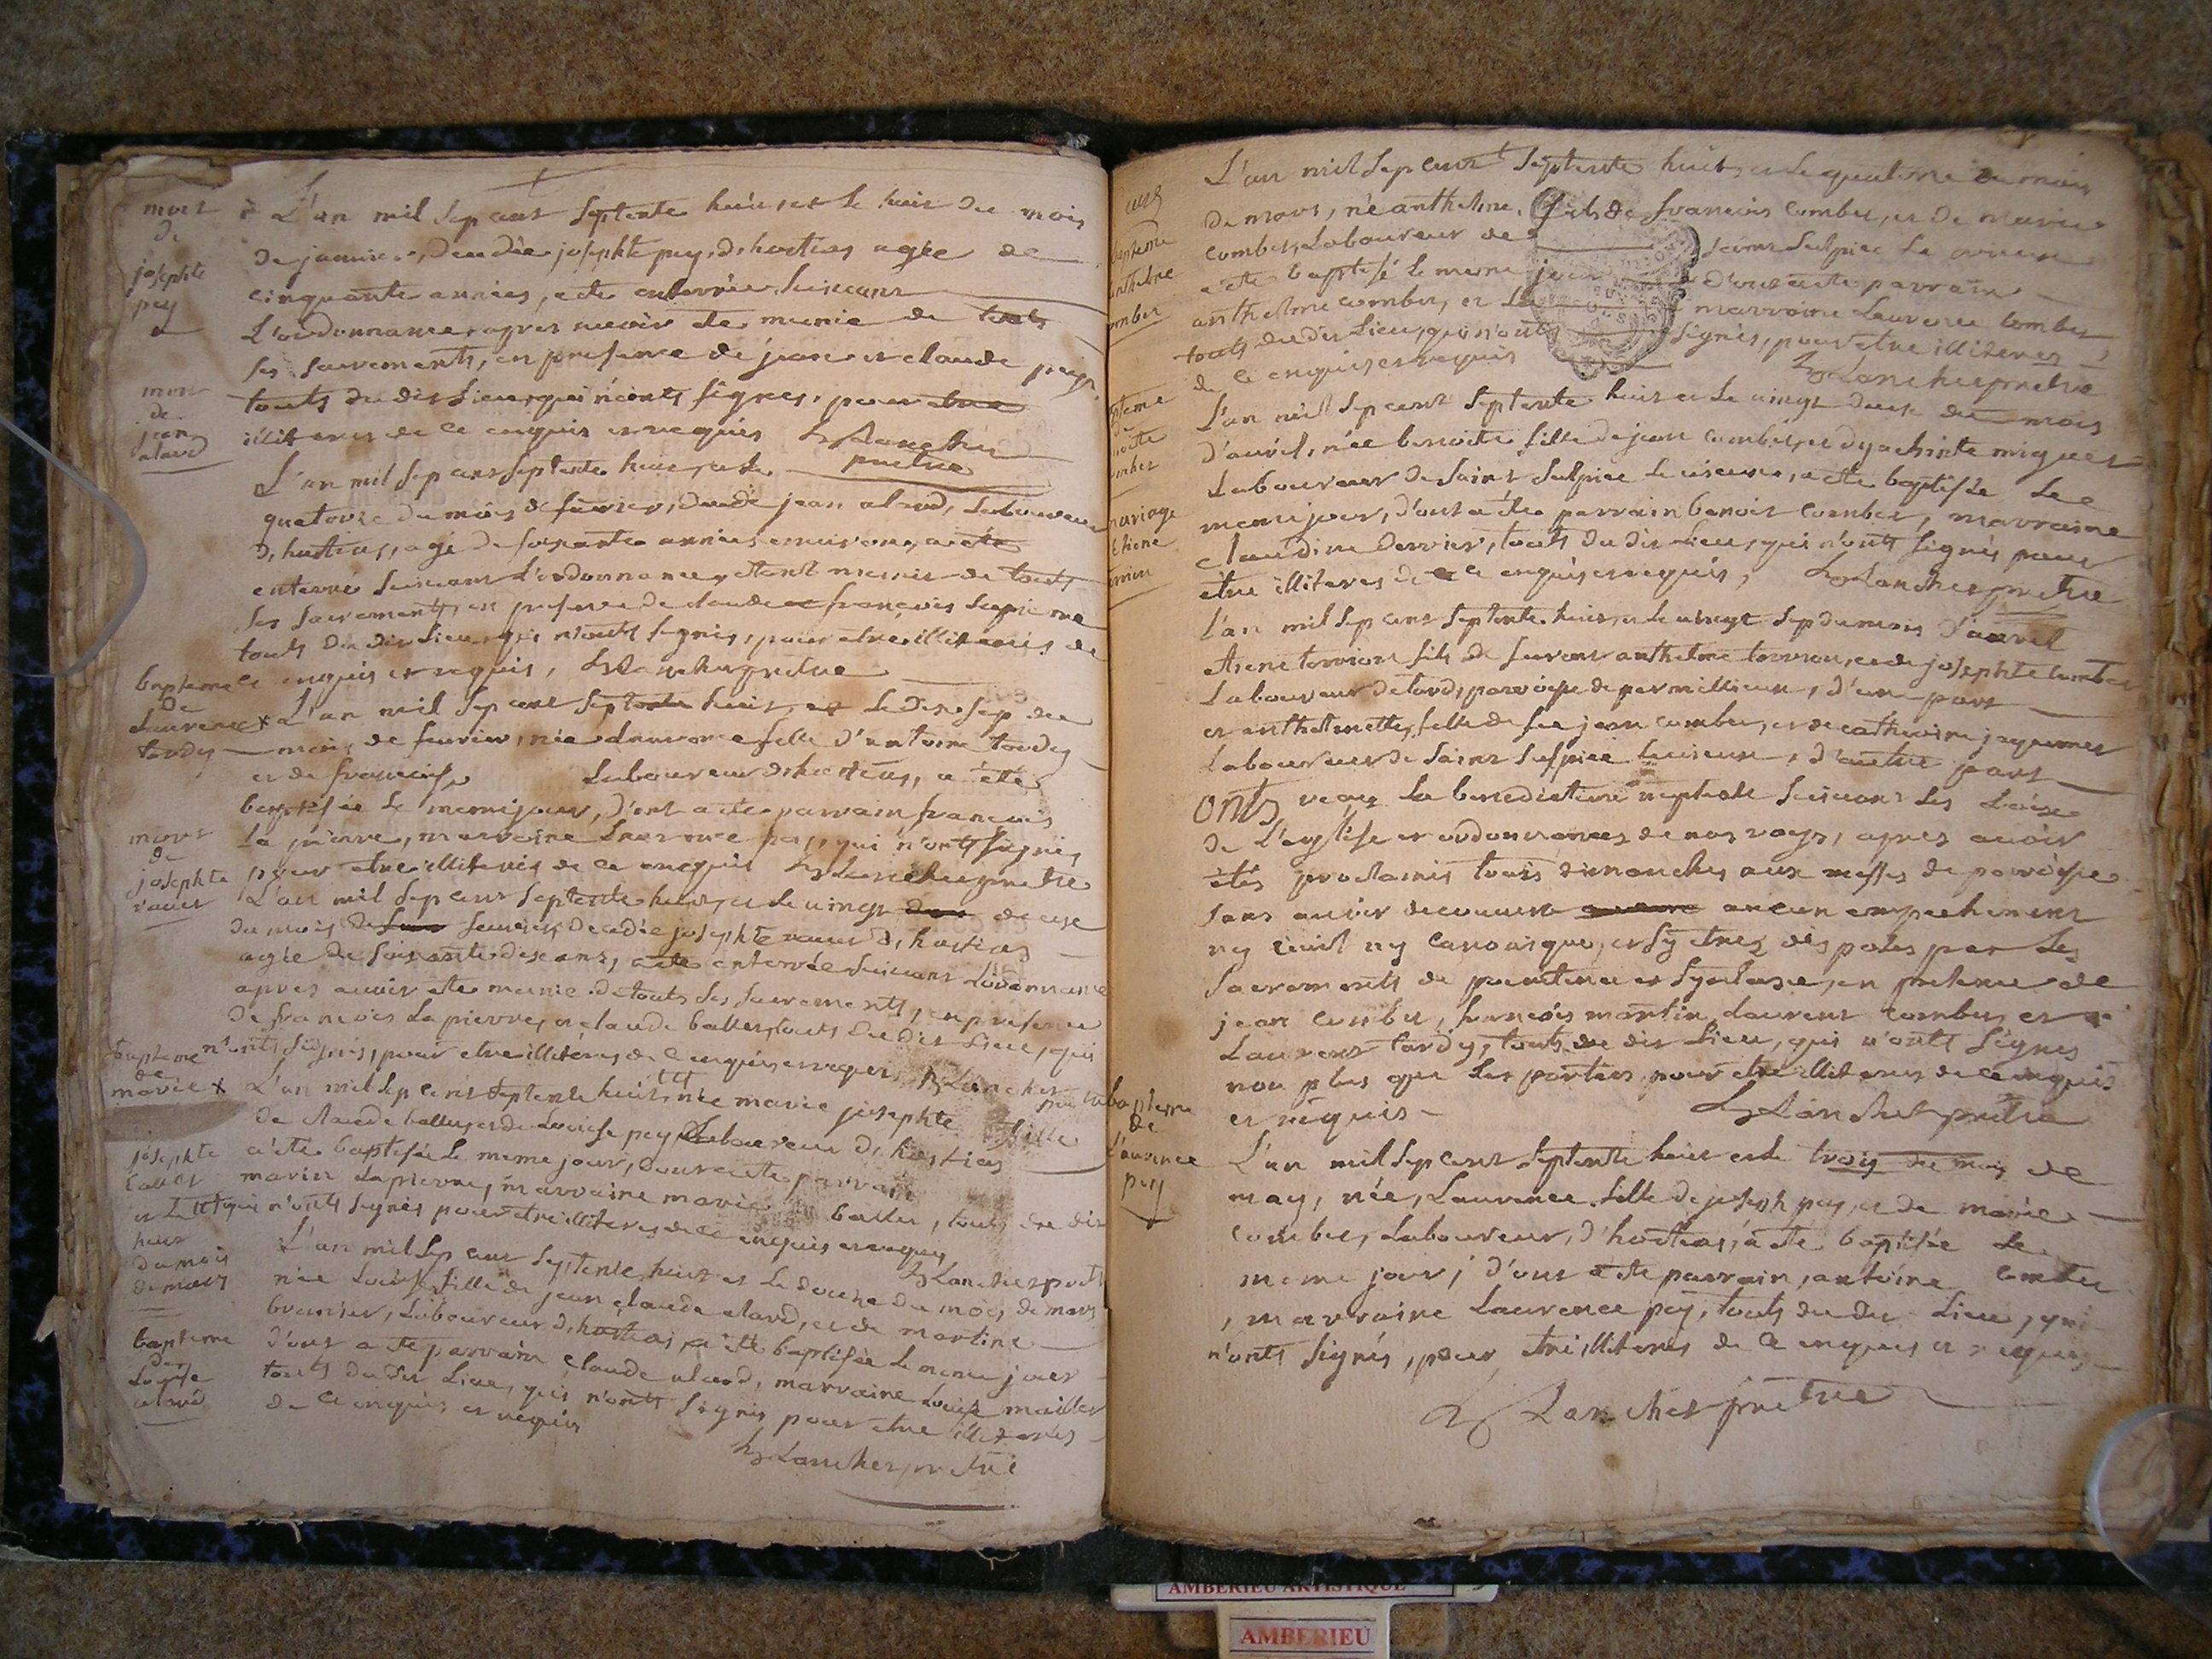 mort
de
josephte
pey
L'an mil sept cent septente huit, et le huit du mois
de janvier, decedée josephte pey, d'hostias agée de
cinquante années, a ete enterrée suivant
l'ordonnance, apres avoir ete munie de touts
ses sacrements, en presence de jean et claude pey,
touts du dit lieu, qui n'ont signes, pour etre
illiteres de ce enquis et requis Lancher
pretre
mort
de
jean
alard
L'an mil sept cens septente huit, et le
quatorze du mois de fevrier, decedé jean alard, laboureur
d'hostias, agé de soisante années environ, a ete
enterré suivant l'ordonnance, etant munis de touts
ses sacrements, en presence de claude et françois
touts du dit lieu, qui n'ont signés, pour etre illiterés de
ce enquis et requis, Lancher pretre
bapteme
de
Laurence
tardy
L'an mil sept cent septente huit, et le dixe sept du
mois de fevrier, née Laurence fille d'antoine tardy
et de françoise laboureur d'hostias, a été
baptisée le meme jour, d'ont a ete parrain françois
la pierre, marraine Laurence pey, qui n'ont signés
pour etre illiterés de ce enquis Lancher pretre
mort
de
josephte
L'an mil sept cent septente huit, et le vingt deuxe
du mois de fevrier, decedée josephte d'hostias
agée de soisante dix ans, a ete enterrée suivant l'ordonnance
apres avoir ete munie de touts ses sacrements, en presence
de françois la pierre, et claude ballet, touts du dit lieu, qui
n'onts signés, pour etre illiteres de ce enquis et requis, Lancher
pretre
bapteme
de
marie
josephte
ballet
et le
huit
du mois
de mars
L'an mil sept cent septente huit, née marie josephte fille
de claude ballet, et de Louise pey laboureur d'hostias
a éte baptisée le meme jour, dont a ete parrain
marin Lapierre, marraine marie ballet, touts du dit
qui n'onts signés pour etre illiteres de ce enquis et requis
Lancher pretre
bapteme
de
Louise
alard
L'an mil sept cent septente huit et le douze du mois de mars
née Louise fille de jean claude alard, et de martine
brunier, laboureur d'hostias, a été baptisée le meme jour
d'ont a ete parrain claude alard, marraine Louise maillet
touts du dit lieu, qui n'onts signés pour etre illiterés
de ce enquis et requis
Lancher pretre
L'an mil sept cent septente huit, et le quatorze du mois
de mars, né anthelme, fils de françois combet, et de marie
combet, laboureur de saint sulpice le vieux
a ete baptisé le meme jour d'ont a ete parrain
anthelme combet, et marraine Laurence combet
touts du dit lieu, qui n'ont signés, pour etre illiteres
de ce enquis et requis
Lancher pretre
L'an mil sept cent septente huit et le vingt deux du mois
d'avril, née benoite fille de jean combet, et d'yachinte miguet
laboureur de saint sulpice le vieux, a ete baptisée le
meme jour, d'ont a éte parrain benoit combet, marraine
claudine dervier, touts du dit lieu, qui n'onts signés pour
etre illiteres de ce enquis et requis, Lancher pretre
mariage
L'an mil sept cent septente huit, et le vingt sept du mois d'avril
etiene tervion fils de laurent anthelme tervion, et de josephte combet
laboureur de tard, parroisse de parmillieux, d'un part
et anthelmette, fille de feu jean combet, et de catherine jaquemet
laboureur de saint sulpice le vieux, d'autre part
onts reçus la benediction nuptiale suivant les loix
de l'eglise et ordonnances de nos roys, apres avoir
étés proclamés trois dimanches aux messes de parroisse
sans avoir decouvert aucun empechement
ny civil ny canonique, et s'y etres disposés par les
sacrements de penitence et en presence de
jean combet, françois martin, Laurent combet, et
Laurent tardy, touts du dit lieu, qui n'ont signes
non plus que les parties pour etre illiteres de ce enquis
et requis
Lancher pretre
bapteme
de
Laurence
pey
L'an mil sept cent septente huit et le trois du mois de
may, née, Laurence fille de joseph pey, et de marie
combet, laboureur, d'hostias, a été baptisée le
meme jour, d'ont a ete parrain, antoine combet
, marraine Laurence pey, touts du dit lieu, qui
n'onts signés, pour etre illiteres de ce enquis et requis
Lancher pretre
AMBERIEU ARTISTIQUE
AMBERIEU